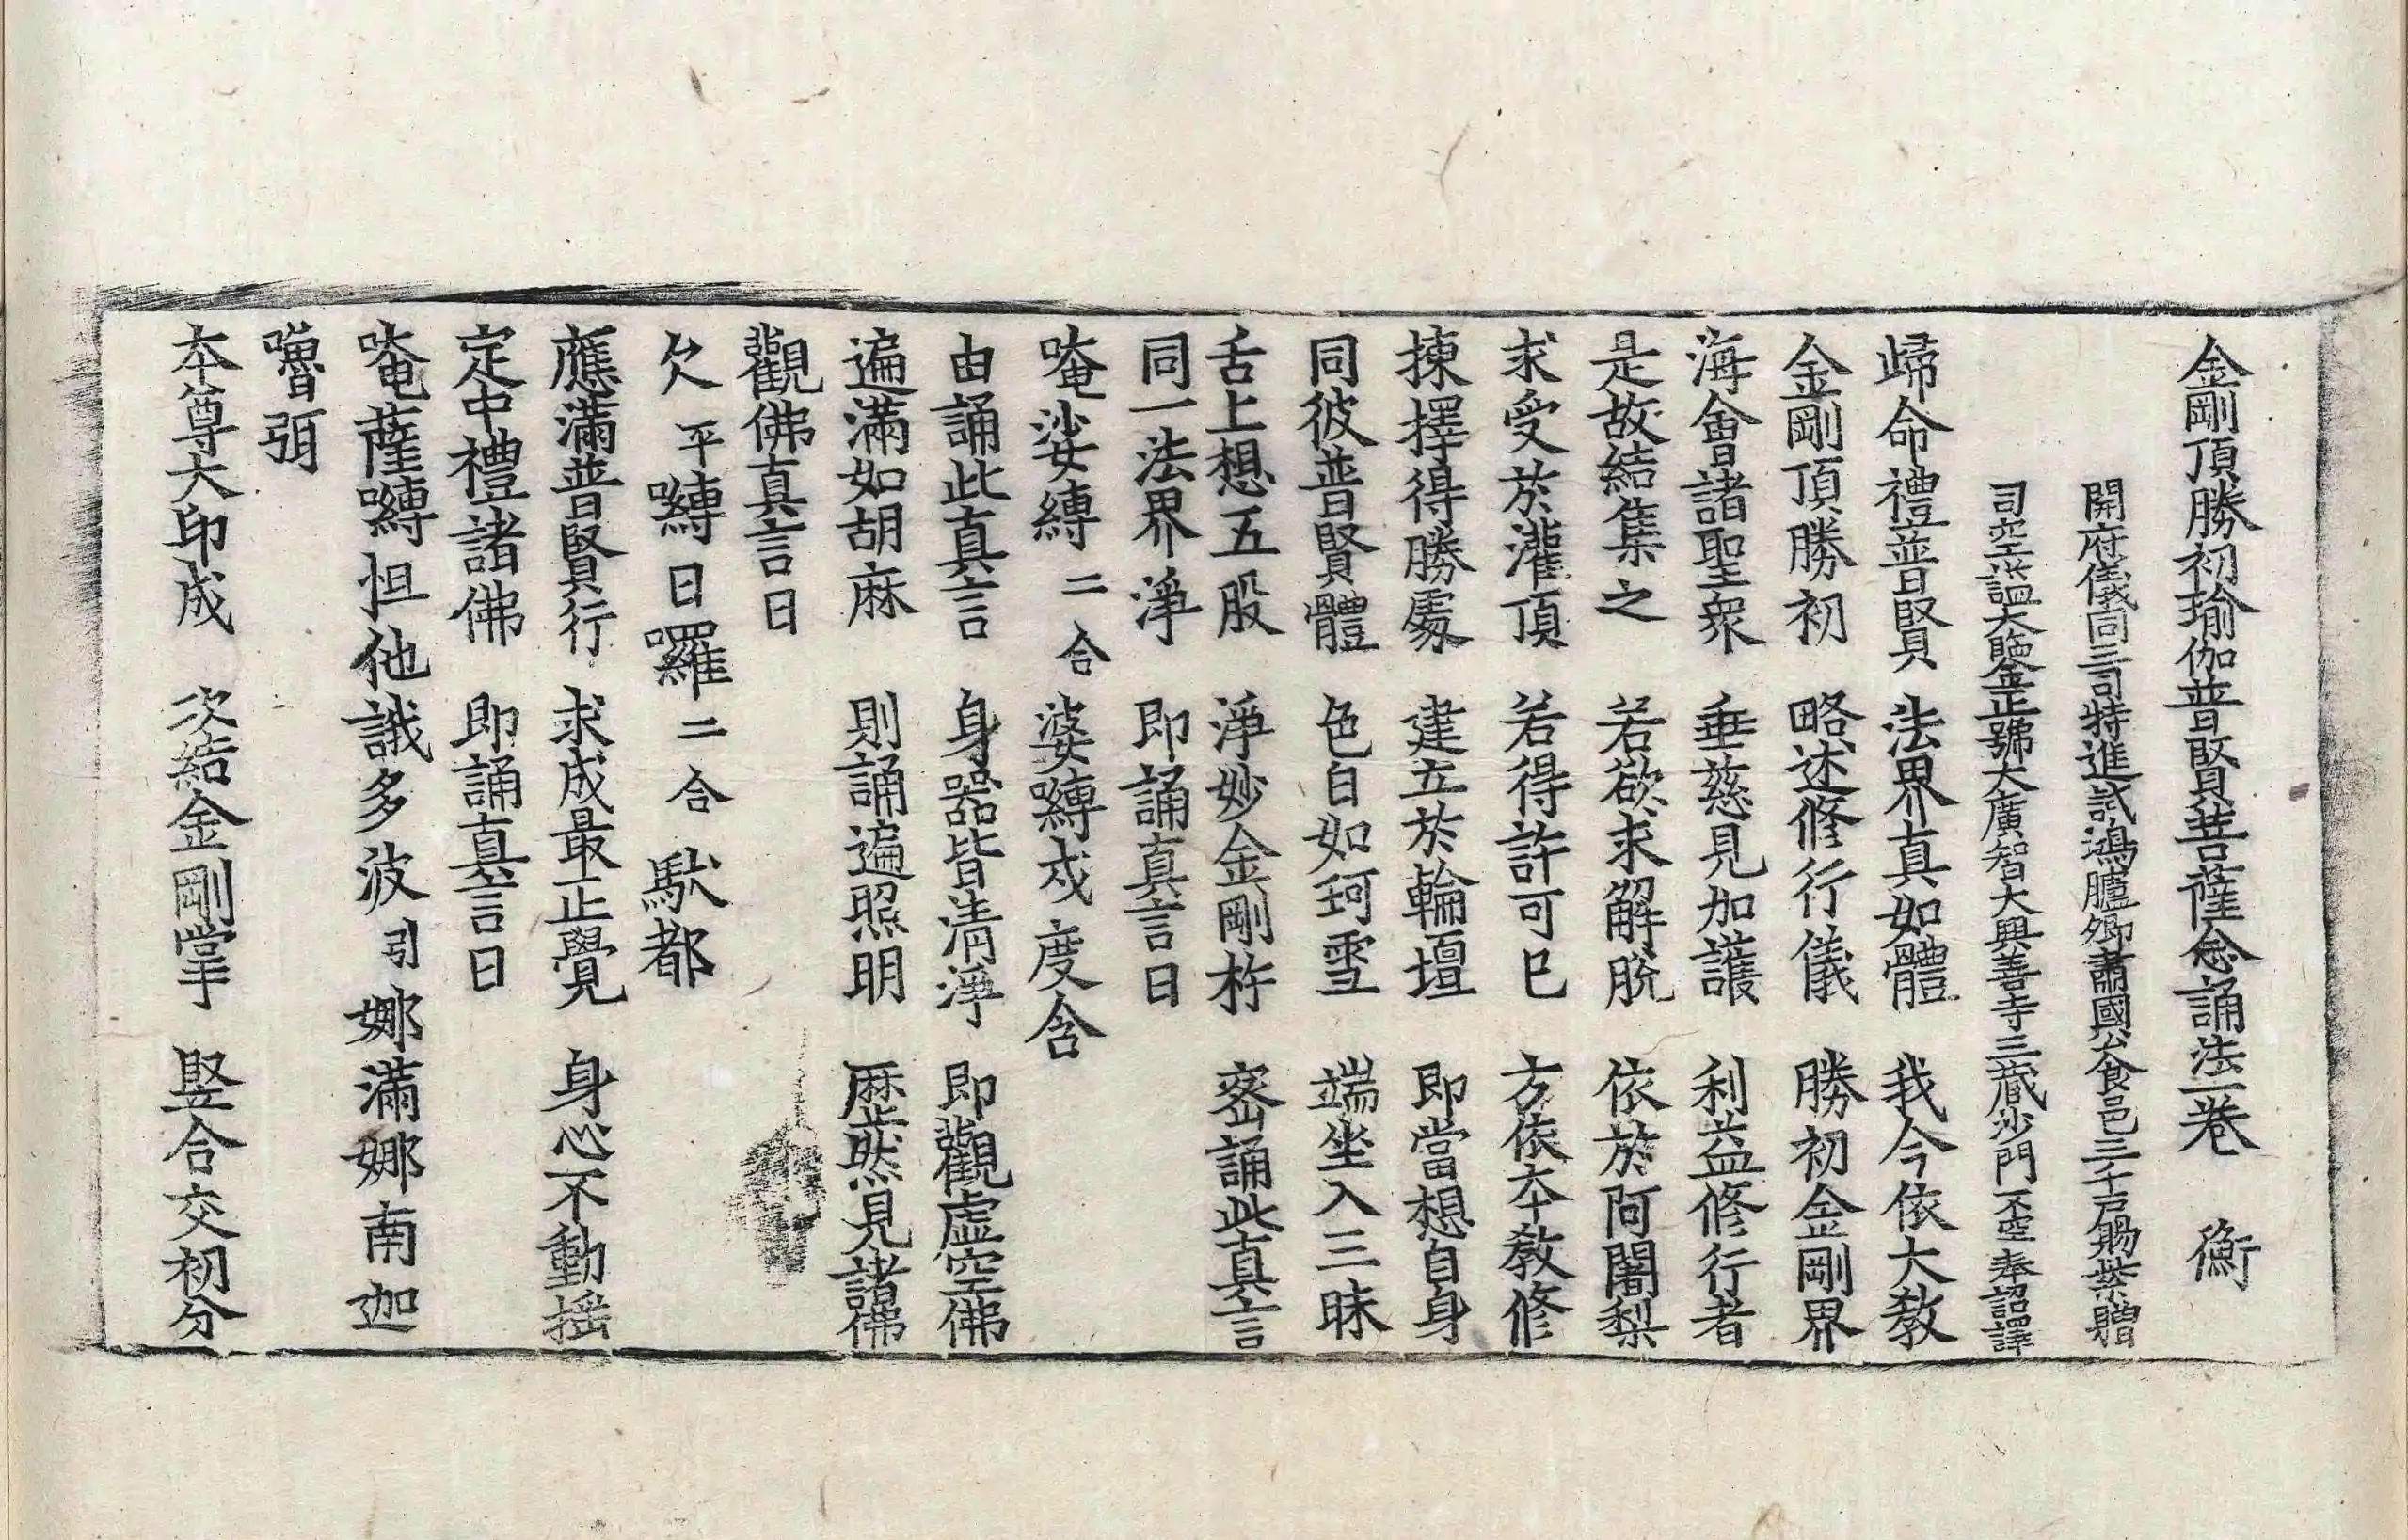 金剛頂勝初瑜伽普賢菩薩念誦法一卷 衡
開府儀同三司特進試鴻臚卿肅國公食邑三千戶賜紫贈
司空謚大鑒正號大廣智大興善寺三藏沙門不空奉詔譯
歸命禮普賢 法界真如體 我今依大教
金剛頂勝初 略述修行儀 勝初金剛界
海會諸聖衆 垂慈見加護 利益修行者
是故結集之 若欲求解脫 依於阿闍梨
求受於灌頂 若得許可已 方依本教修
揀擇得勝處 建立於輪壇 即當想自身
同彼普賢體 色白如珂雪 端坐入三昧
舌上想五股 淨妙金剛杵 密誦此真言
同一法界淨 即誦真言曰
唵娑縛二合婆嚩戍度含
由誦此真言 身器皆清淨 即觀虛空佛
遍滿如胡麻 則誦遍照明 歷然見諸佛
觀佛真言曰
欠平嚩日囉二合馱都
應滿普賢行 求成最正覺 身心不動搖
定中禮諸佛 即誦真言曰
唵薩嚩怛他誐多波引娜滿娜南迦
嚕弭
本尊大印成 次結金剛掌 竪合交初分